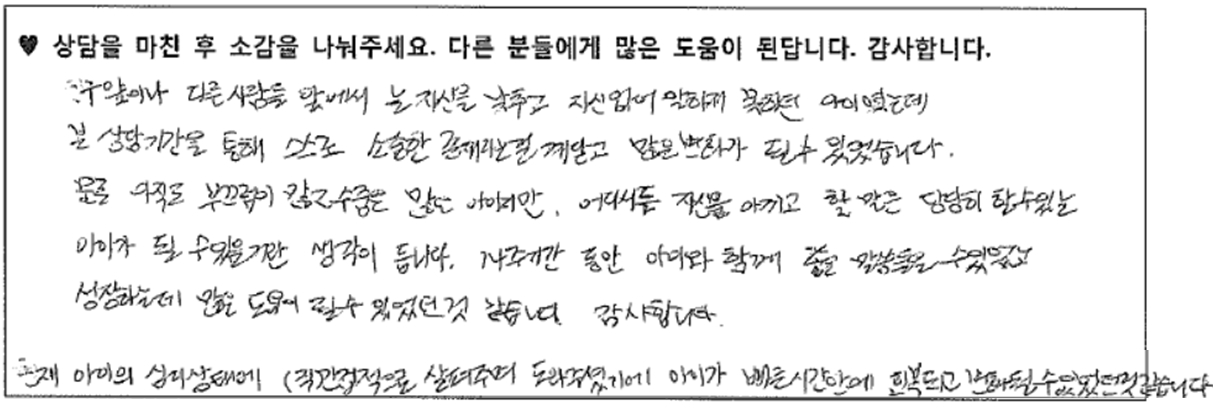 ♥ 상담을 마친 후 소감을 나눠주세요. 다른 분들에게 많은 도움이 된답니다. 감사합니다.
다른 사람들 앞에서 늘 자신을 낮추고 자신없어 말하지 못하던 아이였는데
본 상담기간을 통해 스스로 소중한 존재라는걸 깨닫고 많은 변화가 될 수 있었습니다.
물론 아직도 부끄럼이 많고 수줍은 아이지만, 어디서든 자신을 아끼고 할 말은 당당히 할 수 있는
아이가 될 수 있을거란 생각이 듭니다. 기간 동안 아이와 함께 좋은 말씀들을 수 있었고
성장하는데 많은 도움이 될 수 있었던 것 같습니다. 감사합니다.
현재 아이의 심리상태에 (직간접적으로 살펴주며 도와주셨기에 아이가 빠른 시간안에 회복되고 변화될 수 있었던것 같습니다